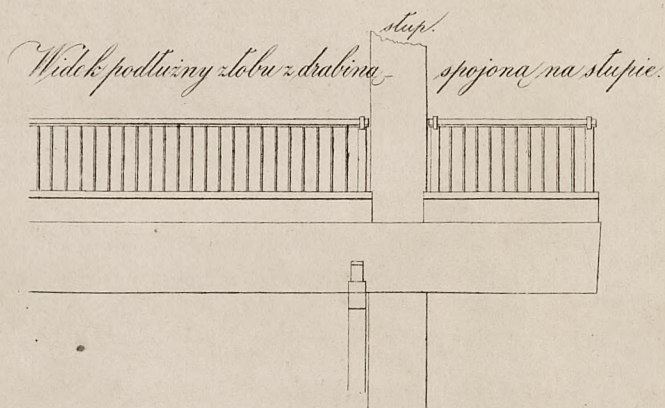 słup.
Widok podłużny złobu z drabiną spojoną na słupie.